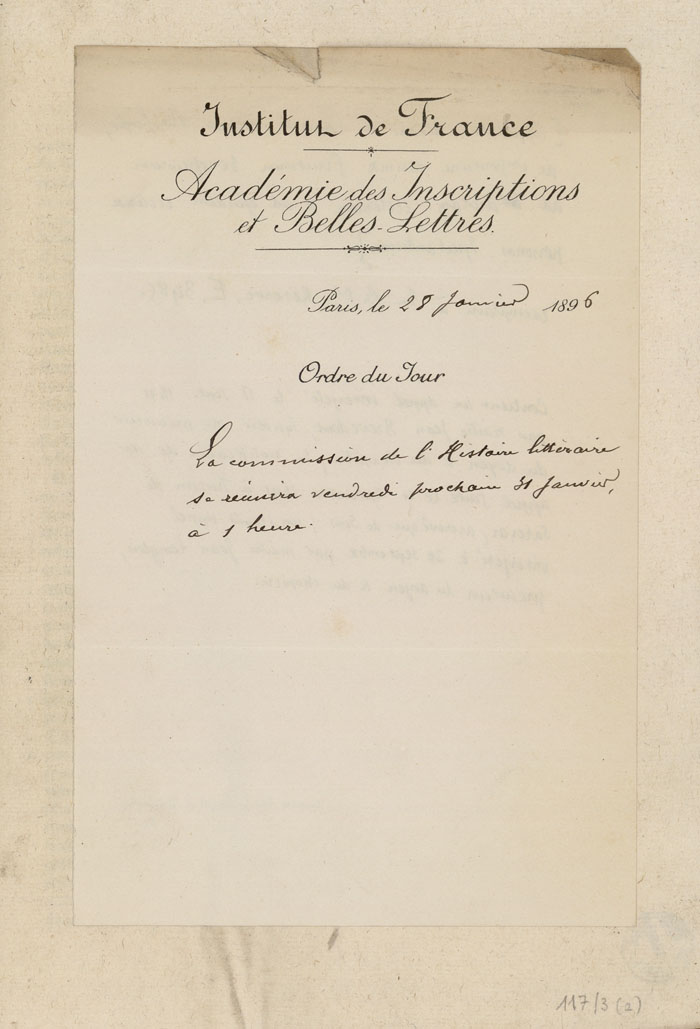 Institut de France
Académie des Inscriptions
et Belles-Lettres.
Paris, le 28 Janvier 1896
Ordre du Jour
La commission de l'Histoire littéraire
se réunira vendredi prochain 31 Janvier,
à 1 heure.
117/3 (a)